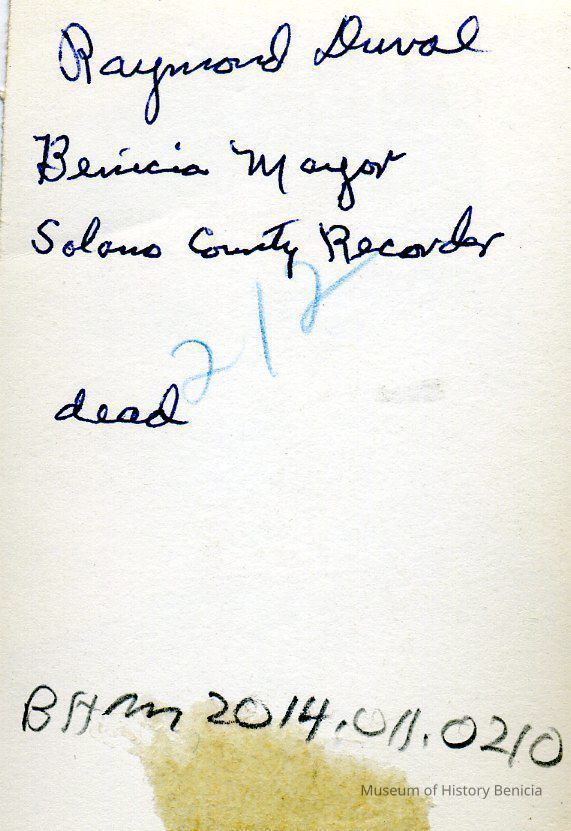 Raymond Duval
Benicia Mayor
Solano County Recorder
212
dead
BHM 2014.011.0210
Museum of History Benicia